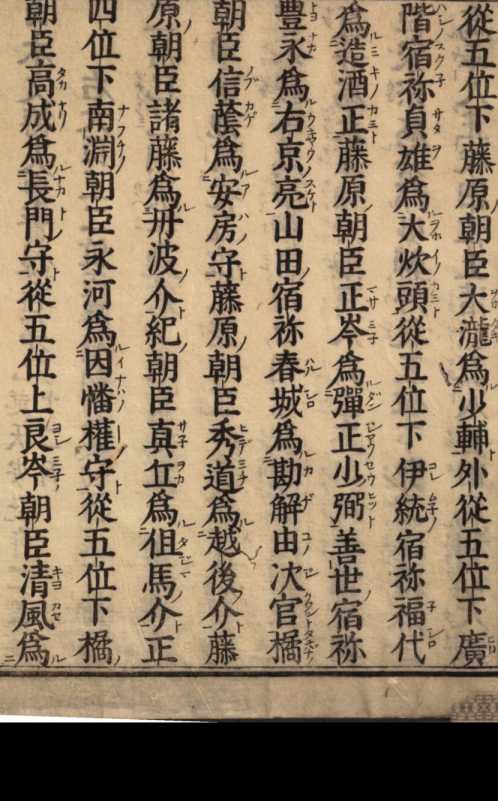 從五位下藤原朝臣大瀧爲少輔外從五位下廣
階宿祢貞雄爲大炊頭從五位下伊統宿祢福代
爲造酒正藤原朝臣正岑爲彈正少弼善世宿祢
豐永爲右京亮山田宿祢春城爲勘解由次官橘
朝臣信蔭爲安房守藤原朝臣秀道爲越後介藤
原朝臣諸藤爲丹波介紀朝臣真丘爲但馬介正
四位下南淵朝臣永河爲因幡權守從五位下橘
朝臣高成爲長門守從五位上良岑朝臣清風爲